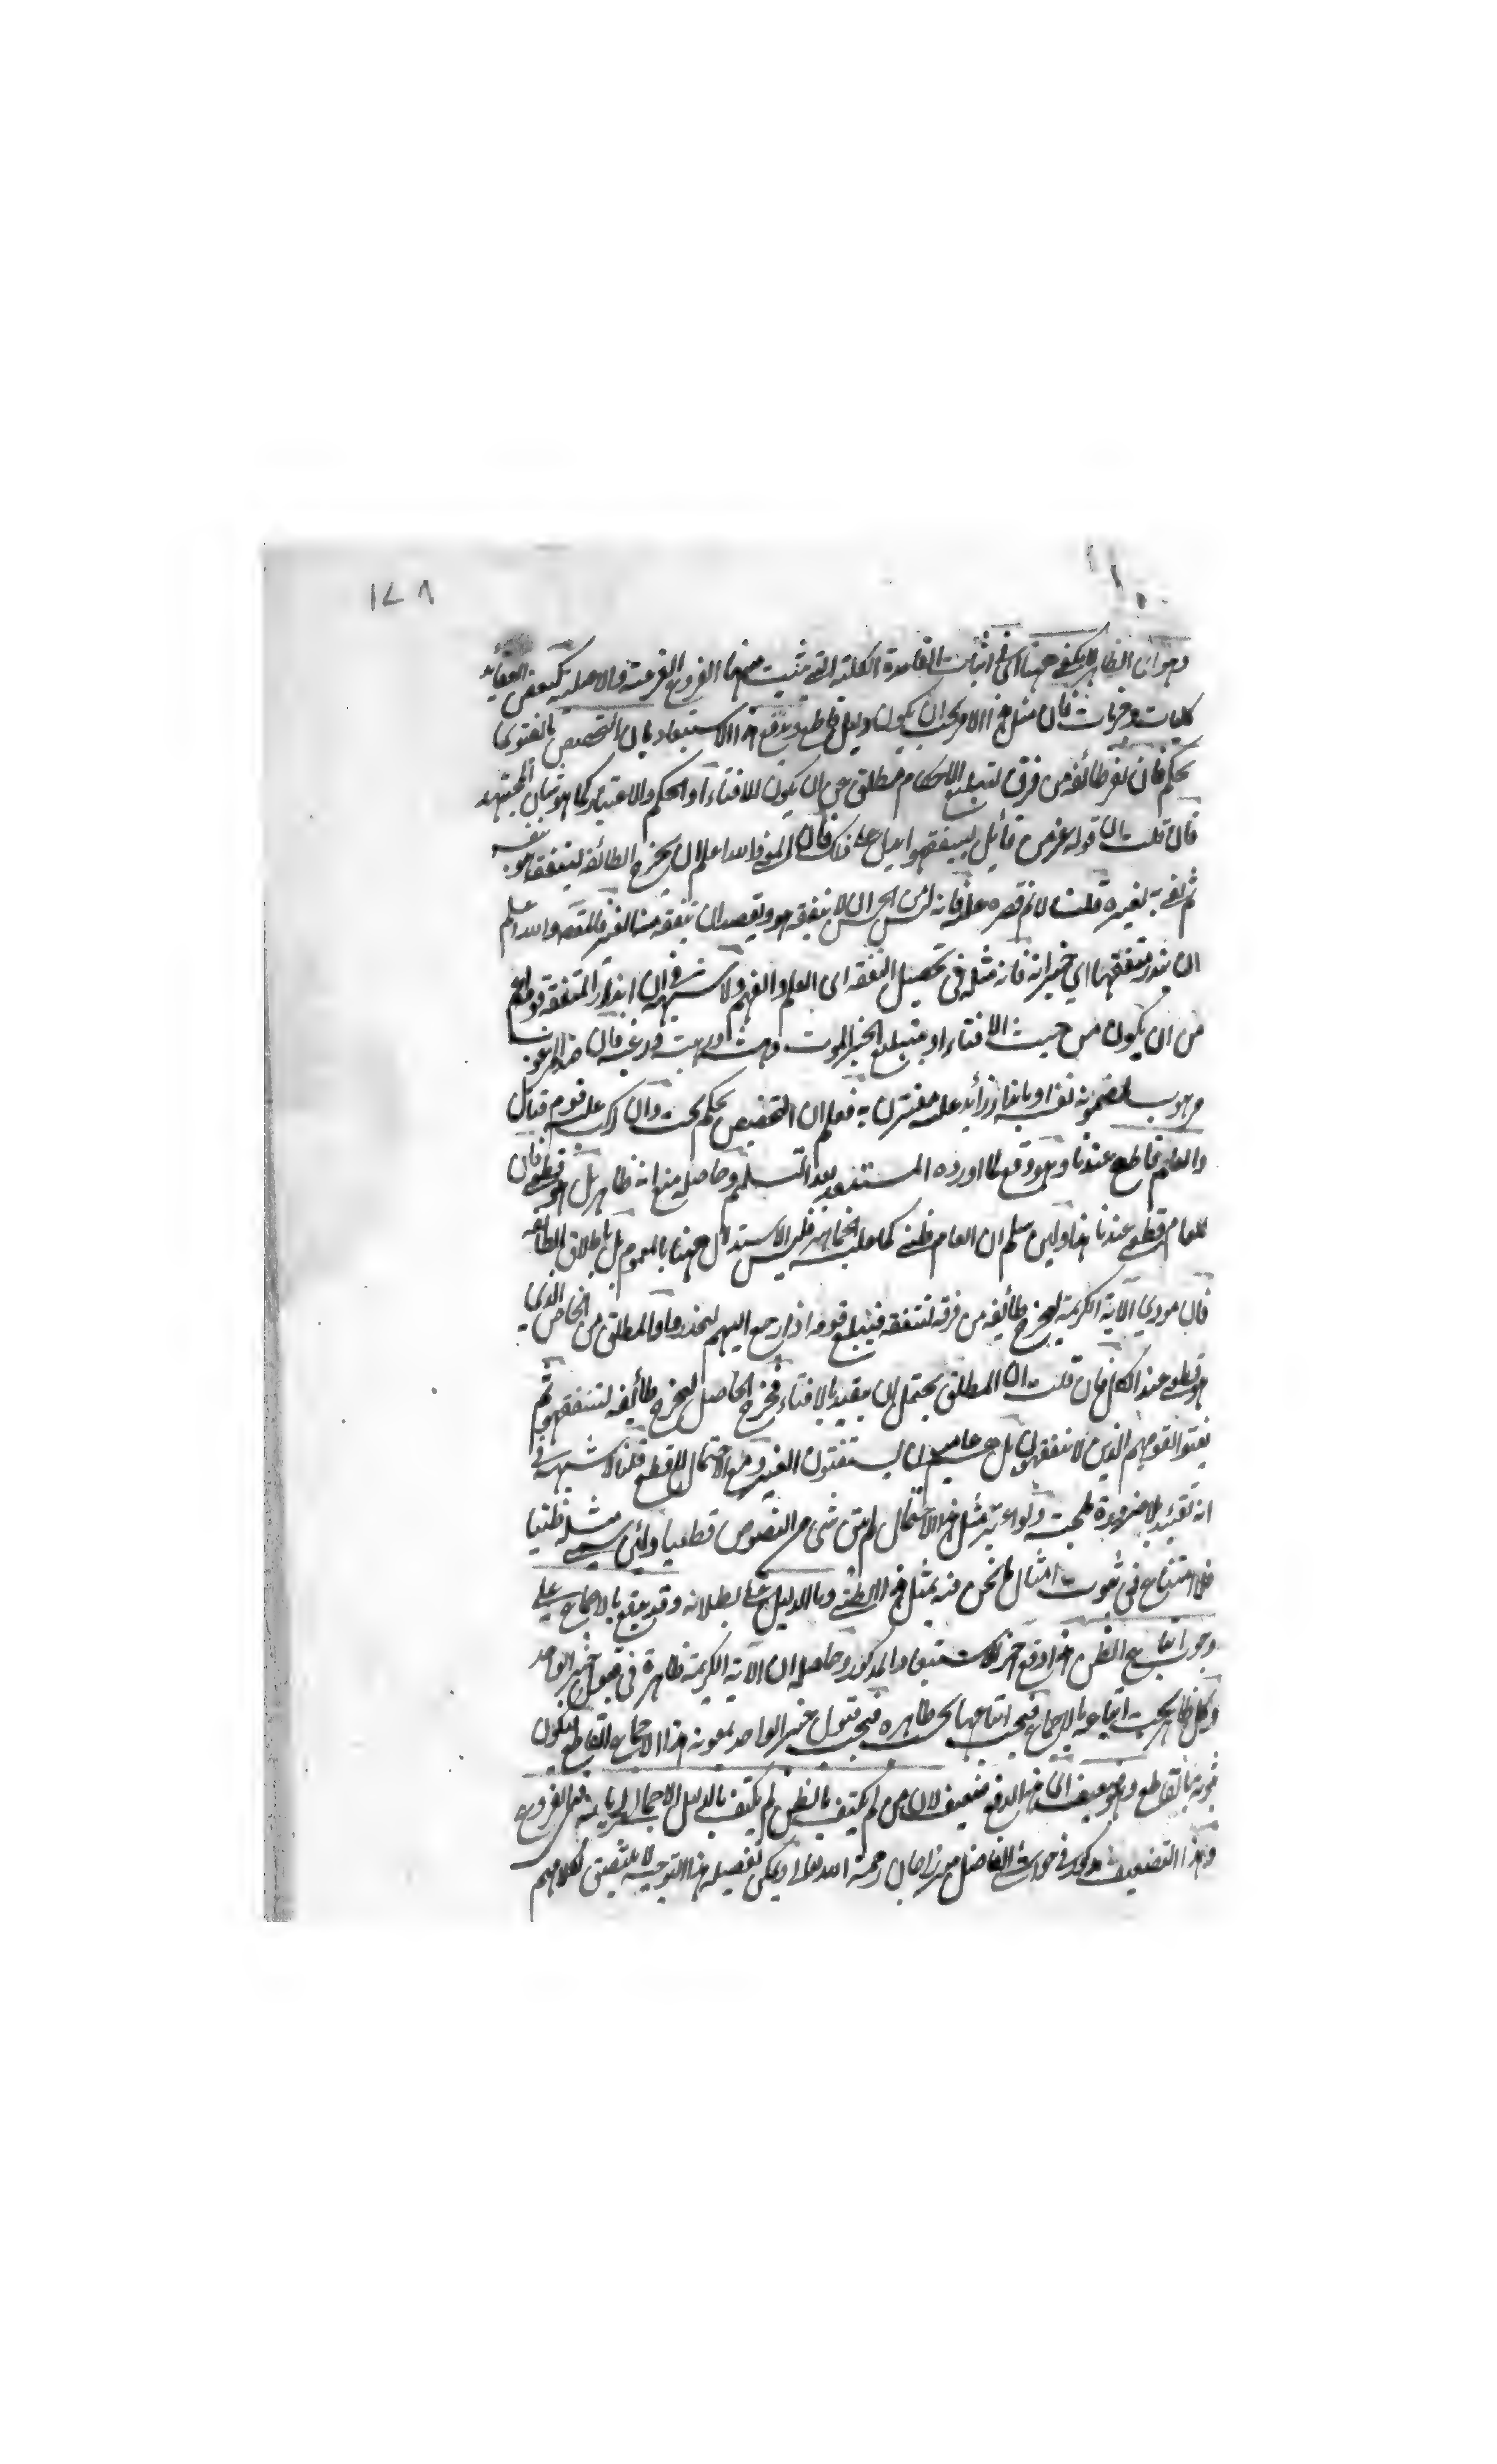 ١٧٨
وهو ان الظاهر لا يكفي ههنا اي في اثبات القاعدة الكلية التي تثبت منها الفروع الفرعية والاصلية كبعض العقايد
كليات وجزئيات فان مثل هذا الامر يجب ان يكون دليله قاطع ويدفع هذا الاستبعاد بان التخصيص بالفتوى
تحكم فان نفر طائفة من فرق لتبليغ الاحكام مطلق عن ان يكون للافتاء او الحكم والاعتبار كما هو شان المجتهد
فان قلت ان قوله عز من قائل ليتفقهوا يدل على ذلك فان المعنى والله اعلم ان يخرج الطائفة ليتفقه هو بنفسه
ثم يفي به لغيره قلت لا نم قصره عليه فانه ليس ان لا يتفقه هو ويقصد ان يتفقه منه الغير فالمقصد والله اعلم
ان ينذر متفقها اي خبرانه فانه مثله في تحصيل التفقه اي العلم والفهم ولا شبهة في ان انذار المتفقه قومه اعم
من ان يكون من حيث الافتاء او بتبليغ الخبر الموت فان
بمضمونه نفسه او بانذار زائد على مفترق به فعلم ان التخصيص تحكم بحت وان
والعام قاطع عندنا وهو دفع لما اورده المستبعد بعد التسليم وحاصله منع انه ظاهر بل هو قطعي فان
العام قطعي عندنا هذا ولئن سلم ان العام ظني كما عليه الجماهير فليس الاستدلال ههنا بالعموم بل باطلاق الطائفة
فان مودى الآية الكريمة ليخرج طائفة من فرقة لتتفقه فيبلغ قومه اذا رجع اليهم ليحذروا والمطلق من الخاص الذي
هو قطعي عند الكل فان قلت ان المطلق يحتمل ان يقيد بالافتاء فخرج الحاصل ليخرج طائفة لتتفقهوا ثم
يفتوا لقومهم الذين لا يتفقهون بل هم عاميين ان يستفتون الغير ومع الاحتمال لا قطع قلنا لا شبهة في
انه تقييد بلا ضرورة ملجئة ولو اعتبر مثل هذا الاحتمال لم يبق شئ من النصوص قطعيا ولئن سمي مثله ظنيا
فلا امتناع في ثبوت امثال ما نحن فيه بمثل هذا الظني وما الدليل على بطلانه وقد يدفع بالاجماع على
وجوب اتباع الظن هذا دفع اخر للاستبعاد المذكور وحاصله ان الآية الكريمة ظاهرة في قبول خبر الواحد
وكل ظاهر يجب اتباعه بالاجماع فيجب اتباعها بحسب ظاهره فيجب قبول خبر الواحد بمعونة هذا الاجماع القاطع فيكون
ثبوته بالقاطع وهو ضعيف اي هذا الدفع ضعيف لان من لم يكتف بالظن لم يكتف بالدليل الاجمالي
وهذا التضعيف مذكور في حواشي الفاضل ميرزا جان رحمة الله تعالى ويمكن تفصيله هذا التوجيه لا يلتصق لكلامهم